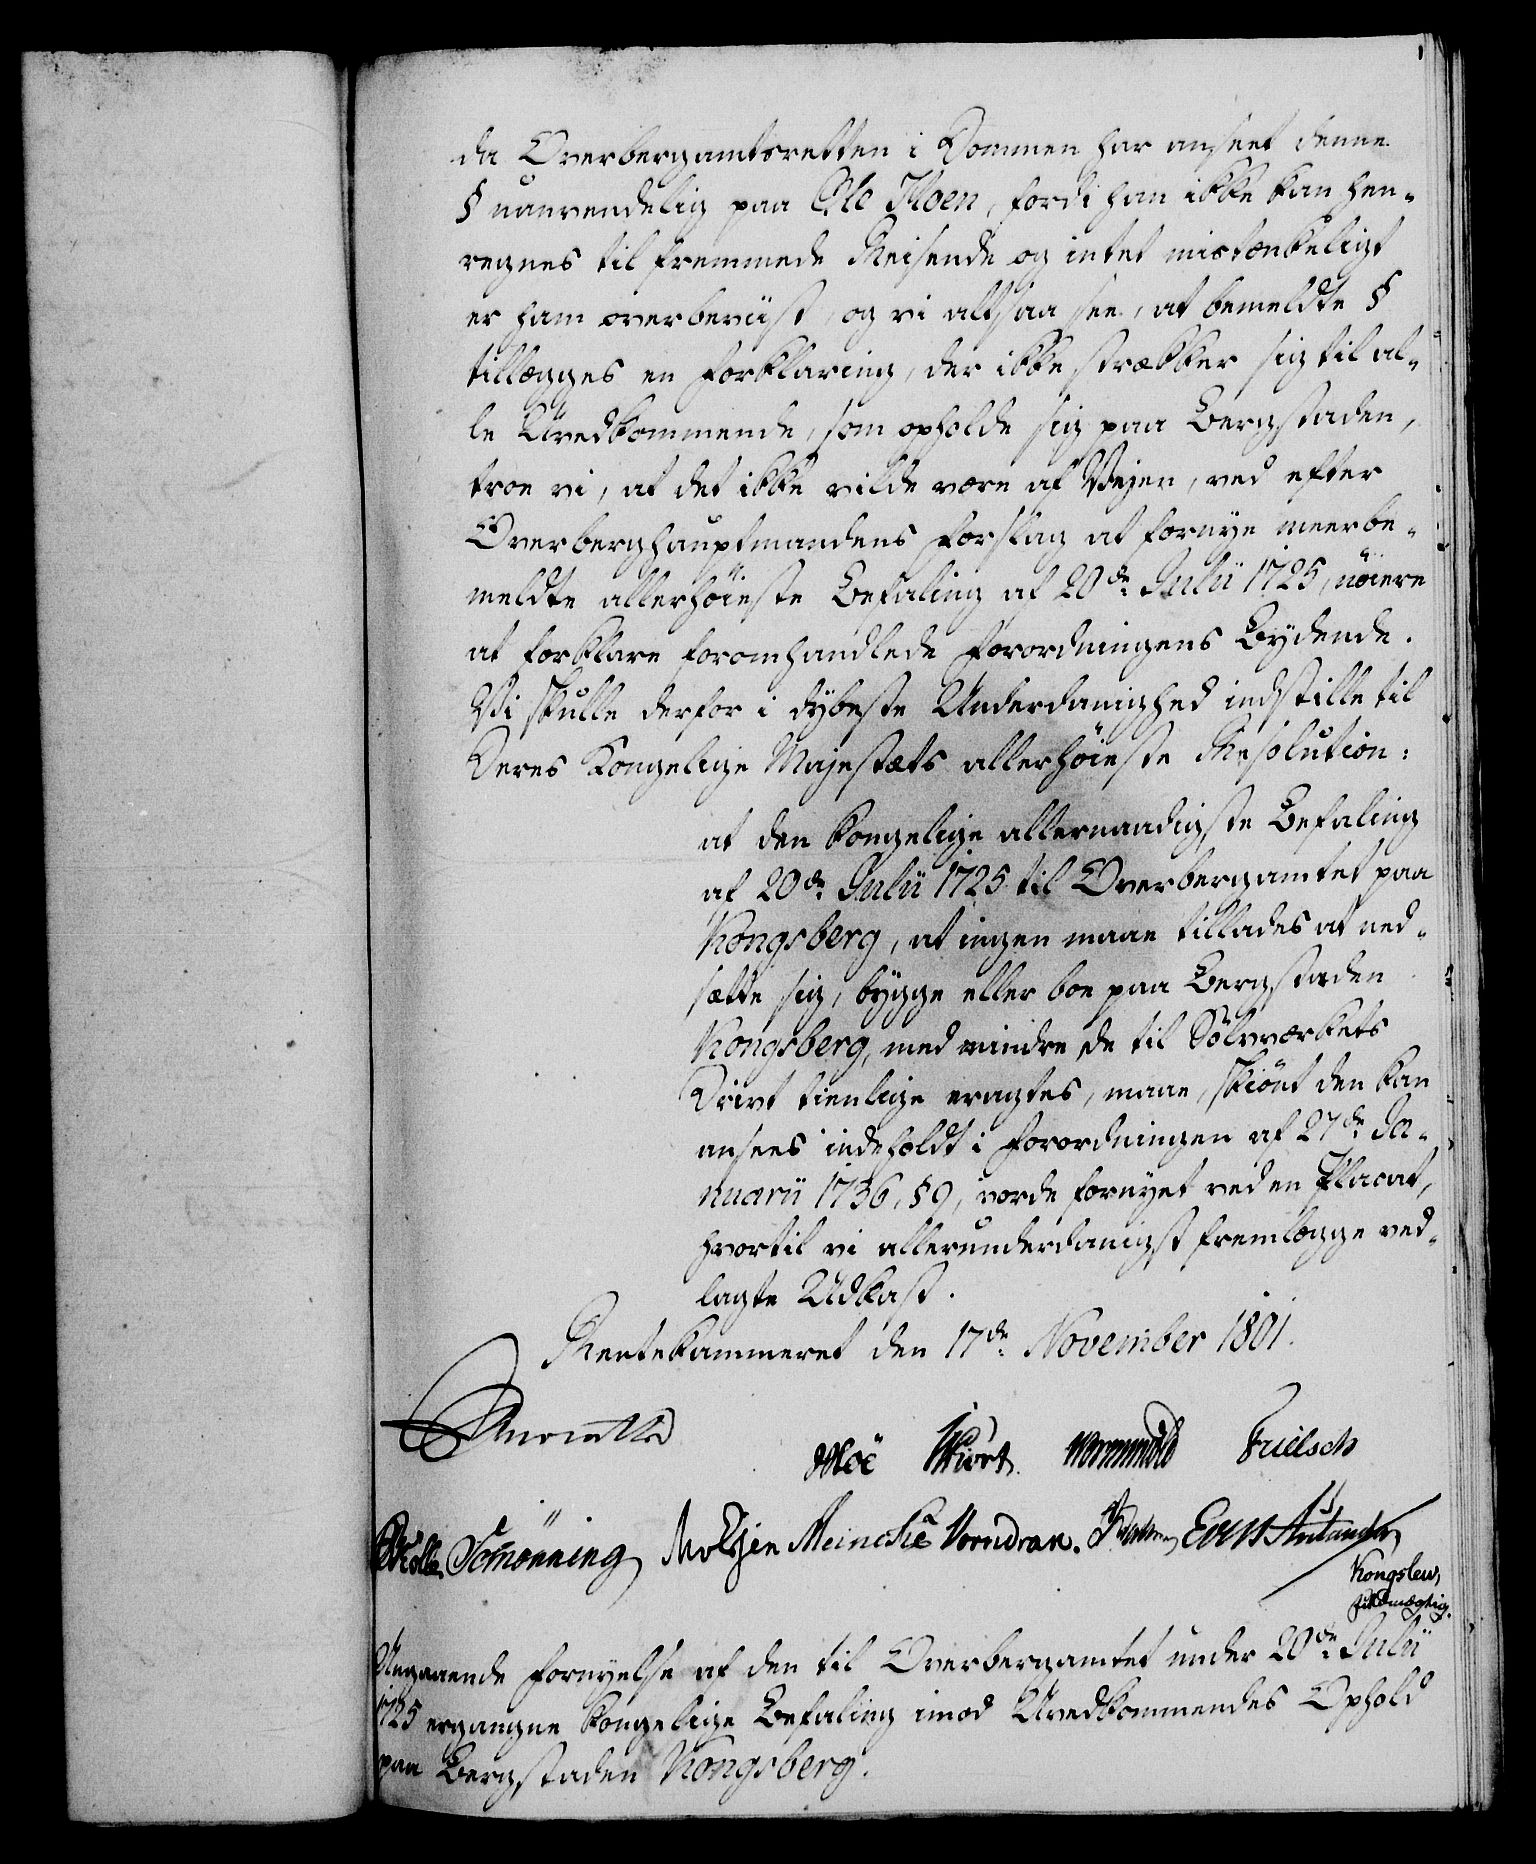 da Overbergamtsretten i Dommen har anseet denne
§ uanvendelig paa Ole Moen, fordi han ikke kan hen-
regnes til fremmede Reisende og intet mistænkeligt
er ham overbevist, og vi altsaa see, at bemeldte §
tillægges en Forklaring, der ikke strækker sig til al-
le Uvedkommende, som opholde sig paa Bergstaden,
troe vi, at det ikke vilde være af Vejen, ved efter
Overberghauptmandens Forslag at fornye meerbe-
meldte allerhöieste Befaling af 20de Julii 1725, nöiere
at forklare foromhandlede Forordningens Bydende.
Vi skulle derfor i dybeste Underdanighed indstille til
Deres Kongelige Majestæts allerhöieste Resolution:
at den kongelige allernaadigste Befaling
af 20de Julii 1725 til Overbergamtet paa
Kongsberg, at ingen maae tillades at ned-
sætte sig, bygge eller boe paa Bergstaden
Kongsberg, med mindre de til Sölvværkets
Drivt tienlige eragtes, maae, skiönt den kan
ansees indeholdt i Forordningen af 27de Ja-
nuarii 1736, § 9, vorde fornyet ved en Placat,
hvortil vi allerunderdanigst fremlægge ved-
lagte Udkast.
Rentekammeret den 17de November 1801.
Reventlow
Moe Wormskiold Frielsch
Schönning Meincke Vorndran.
Kongslew,
fuldmægtig.
Angaaende Fornyelse af den til Overbergamtet under 20de Julii
1725 ergangne kongelige Befaling imod Uvedkommendes Ophold
paa Bergstaden Kongsberg.